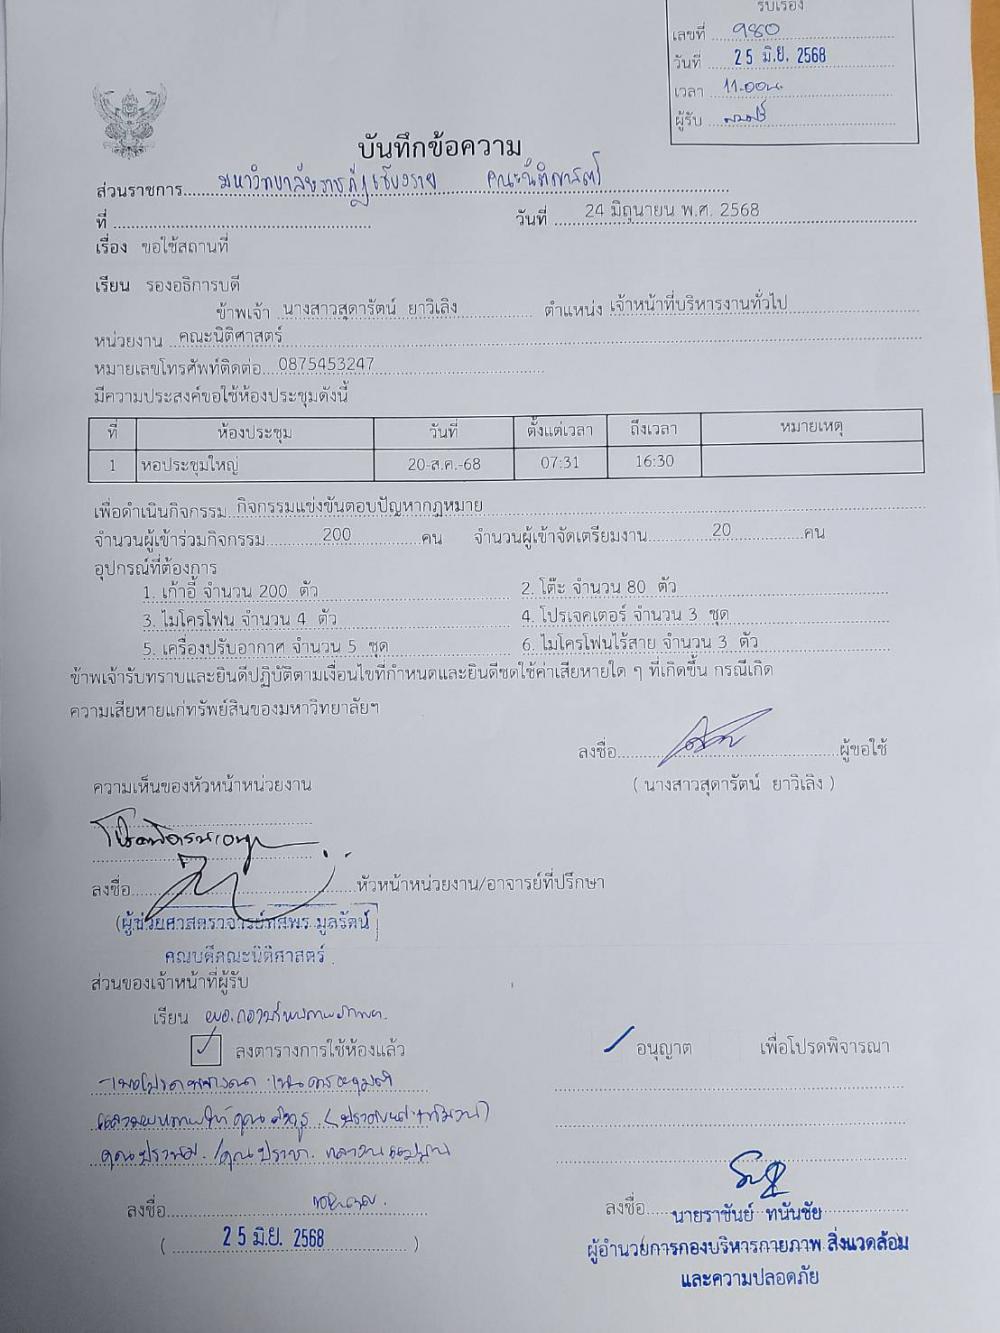 รับเรื่อง
เลขที่ 980
วันที่ 25 มิ.ย. 2568
เวลา 11.00น.
ผู้รับ
บันทึกข้อความ
ส่วนราชการ มหาวิทยาลัยราชภัฏเชียงราย คณะนิติศาสตร์
ที่ วันที่ 24 มิถุนายน พ.ศ. 2568
เรื่อง ขอใช้สถานที่
เรียน รองอธิการบดี
ข้าพเจ้า นางสาวสุดารัตน์ ยาวิเลิง ตำแหน่ง เจ้าหน้าที่บริหารงานทั่วไป
หน่วยงาน คณะนิติศาสตร์
หมายเลขโทรศัพท์ติดต่อ 0875453247
มีความประสงค์ขอใช้ห้องประชุมดังนี้
ที่ ห้องประชุม วันที่ ตั้งแต่เวลา ถึงเวลา หมายเหตุ
1 หอประชุมใหญ่ 20-ส.ค.-68 07:31 16:30
เพื่อดำเนินกิจกรรม กิจกรรมแข่งขันตอบปัญหากฎหมาย
จำนวนผู้เข้าร่วมกิจกรรม 200 คน จำนวนผู้เข้าจัดเตรียมงาน 20 คน
อุปกรณ์ที่ต้องการ
1. เก้าอี้ จำนวน 200 ตัว 2. โต๊ะ จำนวน 80 ตัว
3. ไมโครโฟน จำนวน 4 ตัว 4. โปรเจคเตอร์ จำนวน 3 ชุด
5. เครื่องปรับอากาศ จำนวน 5 ชุด 6. ไมโครโฟนไร้สาย จำนวน 3 ตัว
ข้าพเจ้ารับทราบและยินดีปฏิบัติตามเงื่อนไขที่กำหนดและยินดีชดใช้ค่าเสียหายใด ๆ ที่เกิดขึ้น กรณีเกิด
ความเสียหายแก่ทรัพย์สินของมหาวิทยาลัยฯ
ลงชื่อ ผู้ขอใช้
( นางสาวสุดารัตน์ ยาวิเลิง )
ความเห็นของหัวหน้าหน่วยงาน
ลงชื่อ หัวหน้าหน่วยงาน/อาจารย์ที่ปรึกษา
(ผู้ช่วยศาสตราจารย์ทศพร มูลรัตน์)
คณบดีคณะนิติศาสตร์
ส่วนของเจ้าหน้าที่ผู้รับ
เรียน
ลงตารางการใช้ห้องแล้ว
อนุญาต เพื่อโปรดพิจารณา
ลงชื่อ
( 25 มิ.ย. 2568 )
ลงชื่อ
นายราชันย์ ทนันชัย
ผู้อำนวยการกองบริหารกายภาพ สิ่งแวดล้อม
และความปลอดภัย